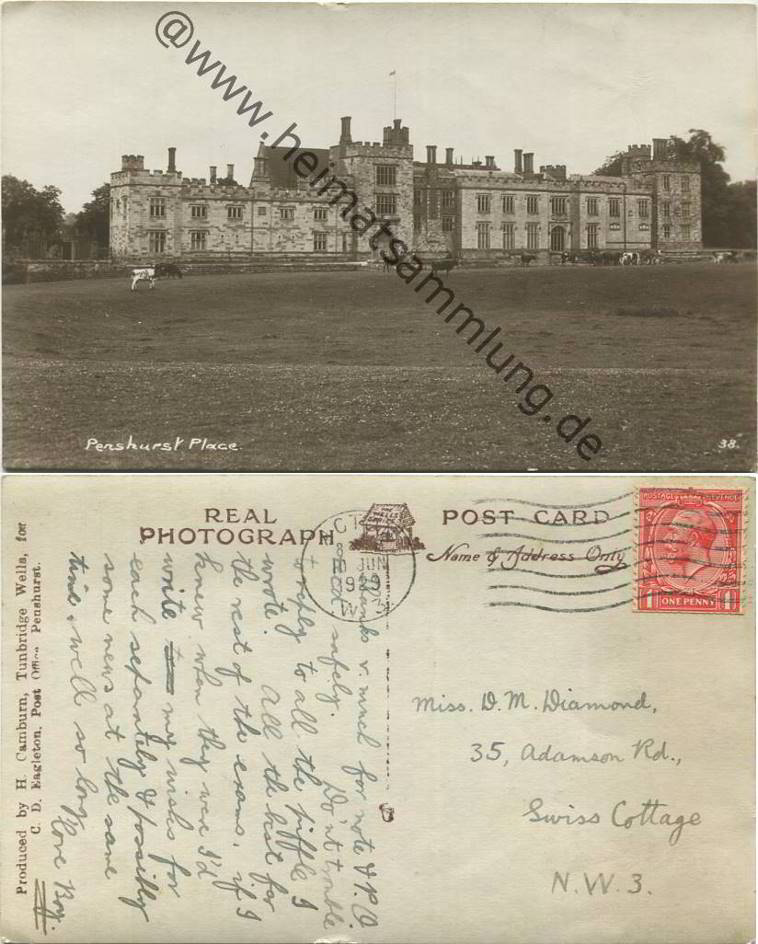 @www.heimatsammlung.de
Penshurst Place.
38.
REAL
PHOTOGRAPH
POST CARD
Name & Address Only
POSTAGE REVENUE
ONE PENNY
THE
WELLS
JUN
Produced by H. Camburn, Tunbridge Wells, for
C. D. Eagleton, Post Office Penshurst.
Thanks v. much for note & P.O
Recd safely. Do'nt trouble
to reply to all the piffle I
wrote. All the best for
the rest of the exams. if I
knew when they were I'd
write my wishes for
each separately & possibly
some news at the same
time. well so long
love Boy.
Miss. D. M. Diamond,
35, Adamson Rd.,
Swiss Cottage
N.W.3.